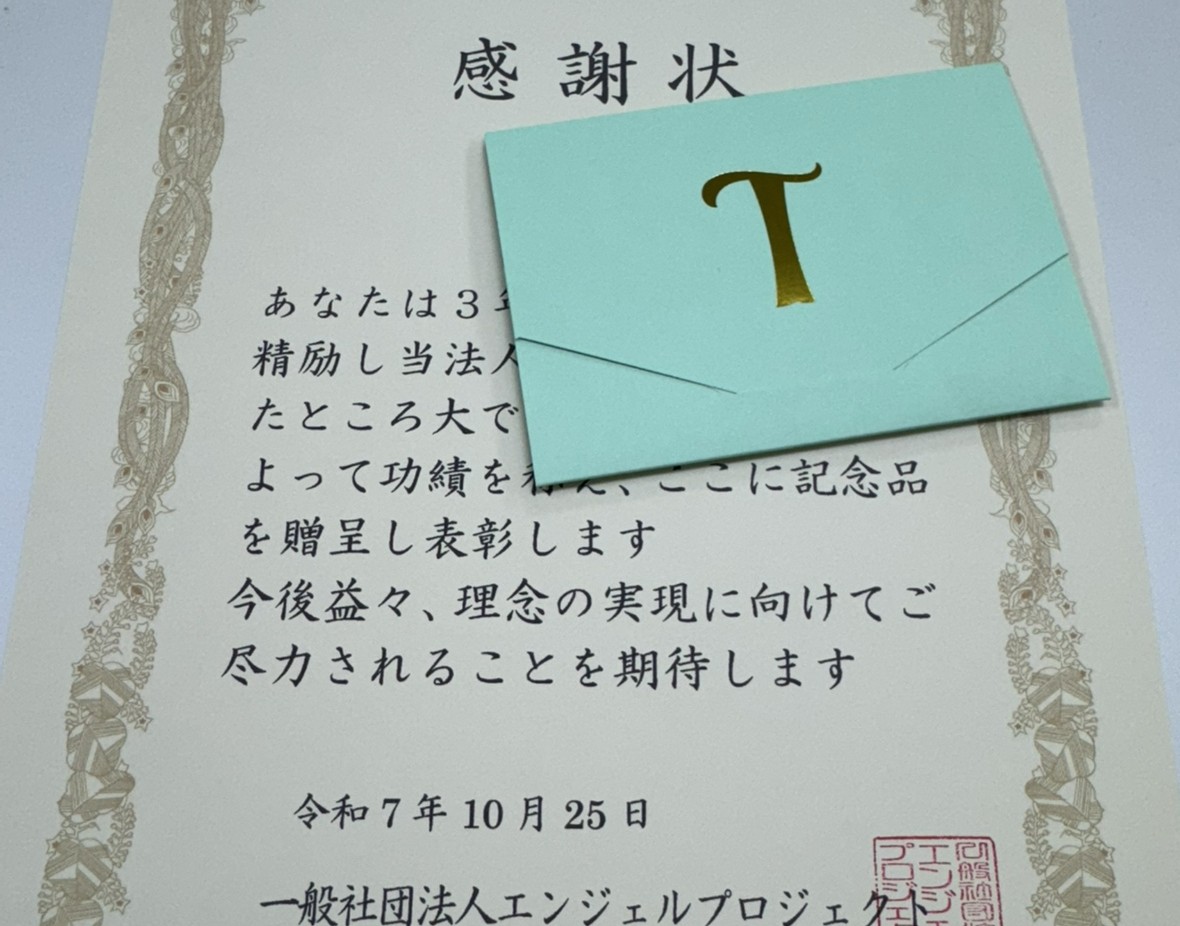 感謝状
T
あなたは3年
精励し当法人
たところ大で
よって功績を称え、ここに記念品
を贈呈し表彰します
今後益々、理念の実現に向けてご
尽力されることを期待します
令和7年10月25日
一般社団法人エンジェルプロジェクト